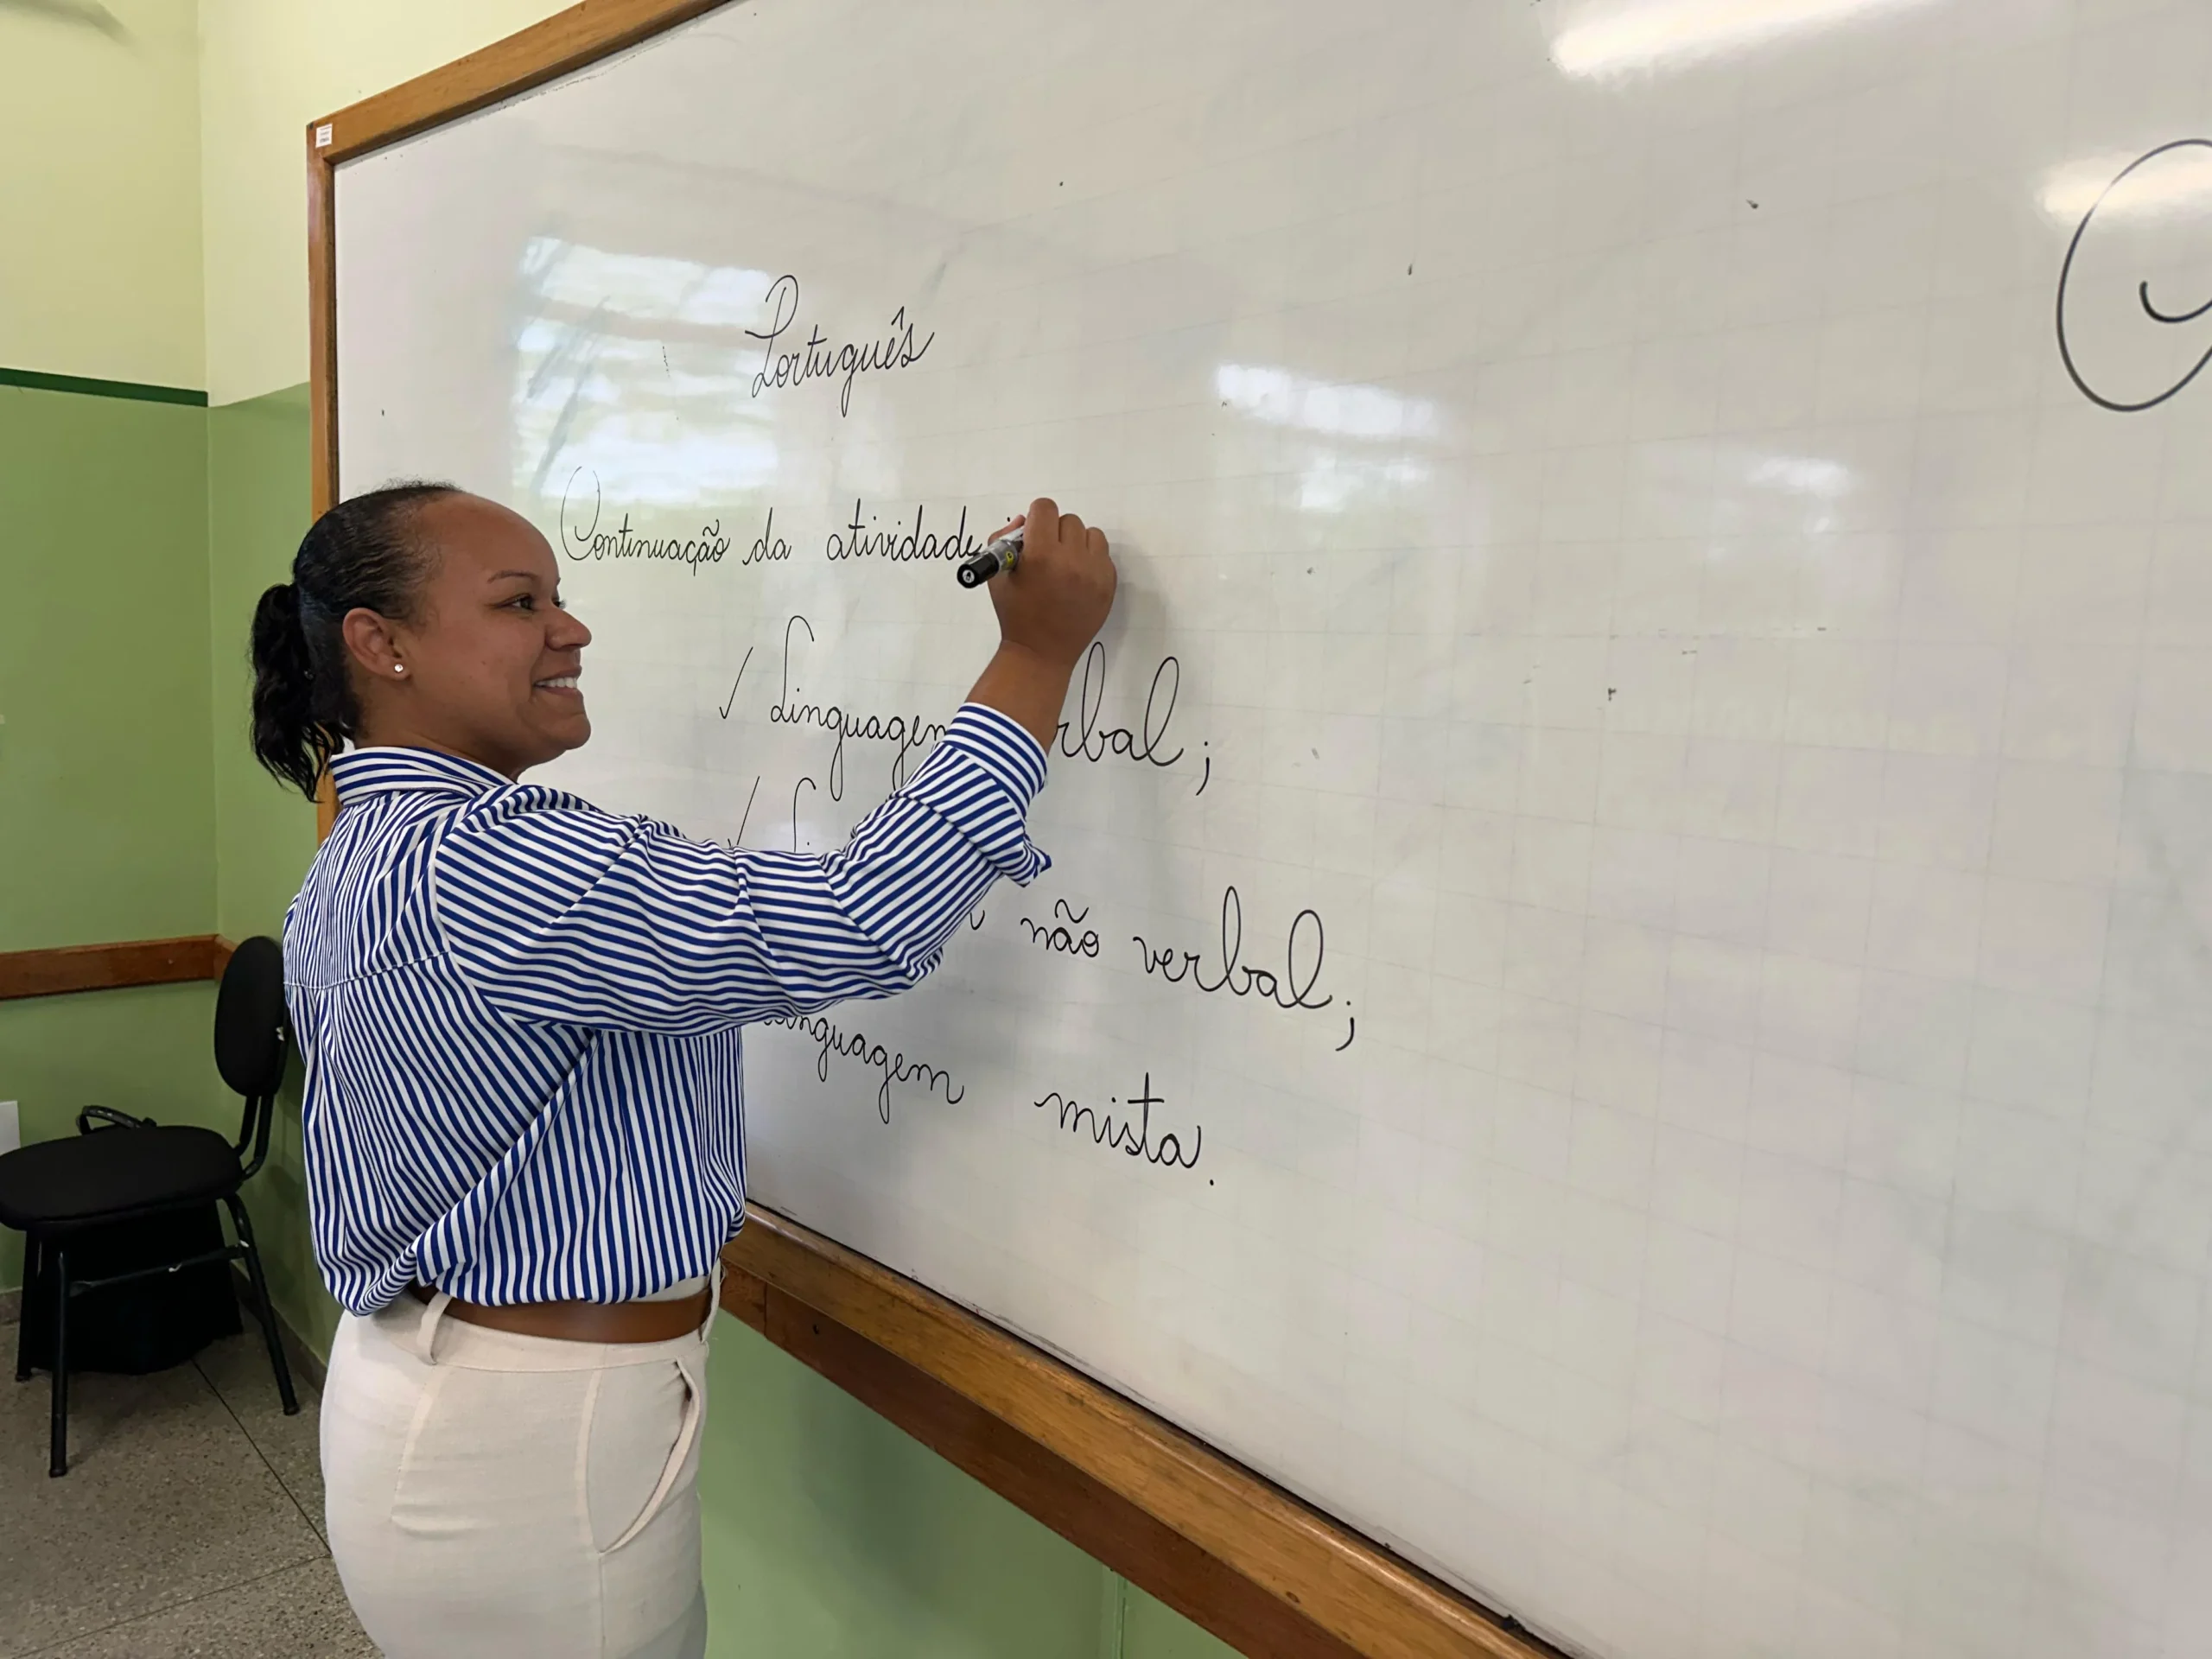 Português
Continuação da atividade
✓ Linguagem verbal;
não verbal;
Linguagem mista.